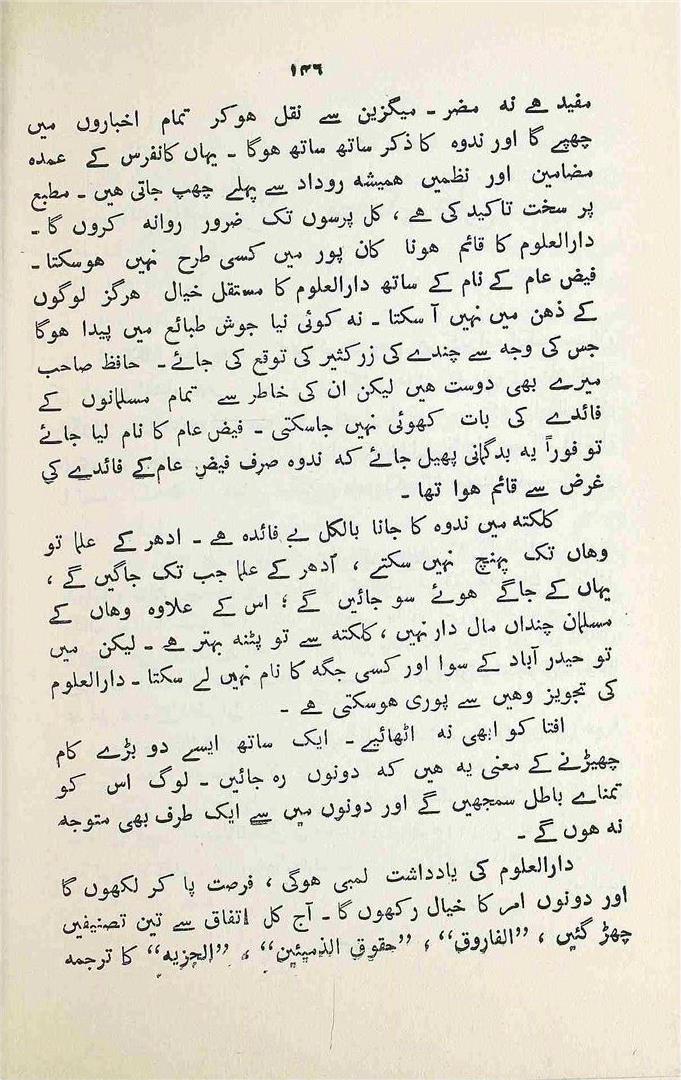 ۱۴٦
مفید ہے نہ مضر ۔ میگزین سے نقل ہوکر تمام اخباروں میں
چھپے گا اور ندوہ کا ذکر ساتھ ساتھ ہوگا ۔ یہاں کانفرس کے عمدہ
مضامین اور نظمیں ہمیشہ روداد سے پہلے چھپ جاتی ہیں ۔ مطبع
پر سخت تاکید کی ہے ، کل پرسوں تک ضرور روانہ کروں گا ۔
دارالعلوم کا قائم ہونا کان پور میں کسی طرح نہیں ہوسکتا ۔
فیض عام کے نام کے ساتھ دارالعلوم کا مستقل خیال ہرگز لوگوں
کے ذہن میں نہیں آ سکتا ۔ نہ کوئی نیا جوش طبائع میں پیدا ہوگا
جس کی وجہ سے چندے کی زر کثیر کی توقع کی جائے ۔ حافظ صاحب
میرے بھی دوست ہیں لیکن ان کی خاطر سے تمام مسلمانوں کے
فائدے کی بات کھوئی نہیں جاسکتی ۔ فیض عام کا نام لیا جائے
تو فوراً یہ بدگمانی پھیل جائے کہ ندوہ صرف فیض عام کے فائدے کی
غرض سے قائم ہوا تھا ۔
کلکتہ میں ندوہ کا جانا بالکل بے فائدہ ہے ۔ ادھر کے علما تو
وہاں تک پہنچ نہیں سکتے ، اُدھر کے علما جب تک جاگیں گے ،
یہاں کے جاگے ہوئے سو جائیں گے ؛ اس کے علاوہ وہاں کے
مسلمان چنداں مال دار نہیں ، کلکتہ سے تو پٹنہ بہتر ہے ۔ لیکن میں
تو حیدر آباد کے سوا اور کسی جگہ کا نام نہیں لے سکتا ۔ دارالعلوم
کی تجویز وہیں سے پوری ہوسکتی ہے ۔
افتا کو ابھی نہ اٹھائیے ۔ ایک ساتھ ایسے دو بڑے کام
چھیڑنے کے معنی یہ ہیں کہ دونوں رہ جائیں ۔ لوگ اس کو
تمناے باطل سمجھیں گے اور دونوں میں سے ایک طرف بھی متوجہ
نہ ہوں گے ۔
دارالعلوم کی یادداشت لمبی ہوگی ، فرصت پا کر لکھوں گا
اور دونوں امر کا خیال رکھوں گا ۔ آج کل اتفاق سے تین تصنیفیں
چھڑ گئیں ، ”الفاروق“ ، ”حقوق الذمیئین“ ، ”الجزیہ“ کا ترجمہ